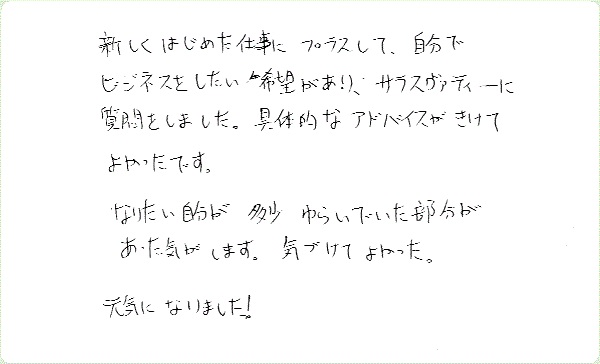 新しくはじめた仕事に プラスして、自分で
ビジネスをしたい希望があり、サラスヴァティーに
質問をしました。具体的なアドバイスがきけて
よかったです。
なりたい自分が 多少 ゆらいでいた部分が
あった気がします。気づけてよかった。
元気になりました!